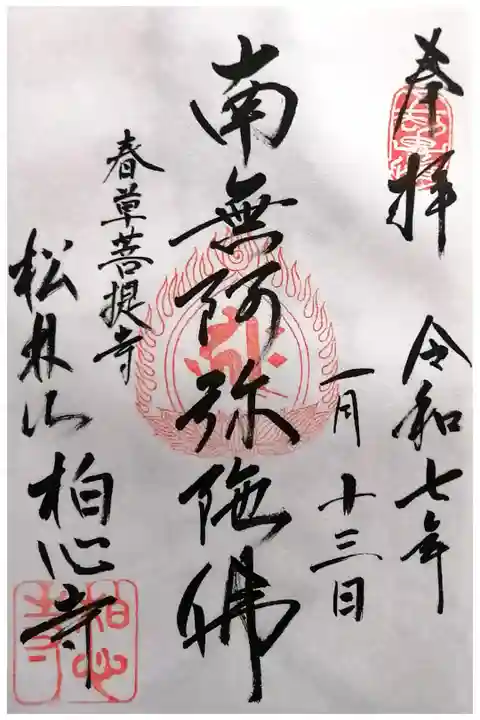 奉拝
令和七年
一月十三日
南無阿弥陀佛
春草菩提寺
松林山柏心寺
柏心
寺